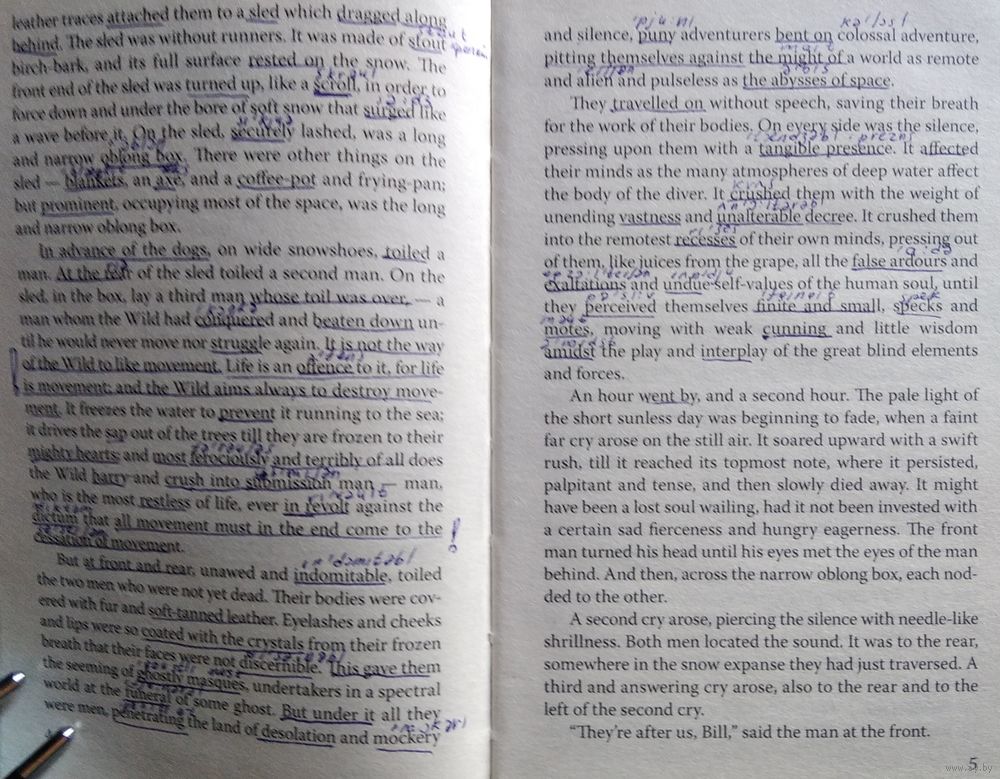 leather traces attached them to a sled which dragged along
behind. The sled was without runners. It was made of stout
birch-bark, and its full surface rested on the snow. The
front end of the sled was turned up, like a scroll, in order to
force down and under the bore of soft snow that surged like
a wave before it. On the sled, securely lashed, was a long
and narrow oblong box. There were other things on the
sled — blankets, an axe, and a coffee-pot and frying-pan;
but prominent, occupying most of the space, was the long
and narrow oblong box.
In advance of the dogs, on wide snowshoes, toiled a
man. At the rear of the sled toiled a second man. On the
sled, in the box, lay a third man whose toil was over, — a
man whom the Wild had conquered and beaten down un-
til he would never move nor struggle again. It is not the way
of the Wild to like movement. Life is an offence to it, for life
is movement; and the Wild aims always to destroy move-
ment. It freezes the water to prevent it running to the sea;
it drives the sap out of the trees till they are frozen to their
mighty hearts; and most ferociously and terribly of all does
the Wild harry and crush into submission man — man,
who is the most restless of life, ever in revolt against the
dictum that all movement must in the end come to the
cessation of movement.
But at front and rear, unawed and indomitable, toiled
the two men who were not yet dead. Their bodies were cov-
ered with fur and soft-tanned leather. Eyelashes and cheeks
and lips were so coated with the crystals from their frozen
breath that their faces were not discernible. This gave them
the seeming of ghostly masques, undertakers in a spectral
world at the funeral of some ghost. But under it all they
were men, penetrating the land of desolation and mockery
and silence, puny adventurers bent on colossal adventure,
pitting themselves against the might of a world as remote
and alien and pulseless as the abysses of space.
They travelled on without speech, saving their breath
for the work of their bodies. On every side was the silence,
pressing upon them with a tangible presence. It affected
their minds as the many atmospheres of deep water affect
the body of the diver. It crushed them with the weight of
unending vastness and unalterable decree. It crushed them
into the remotest recesses of their own minds, pressing out
of them, like juices from the grape, all the false ardours and
exaltations and undue self-values of the human soul, until
they perceived themselves finite and small, specks and
motes, moving with weak cunning and little wisdom
amidst the play and interplay of the great blind elements
and forces.
An hour went by, and a second hour. The pale light of
the short sunless day was beginning to fade, when a faint
far cry arose on the still air. It soared upward with a swift
rush, till it reached its topmost note, where it persisted,
palpitant and tense, and then slowly died away. It might
have been a lost soul wailing, had it not been invested with
a certain sad fierceness and hungry eagerness. The front
man turned his head until his eyes met the eyes of the man
behind. And then, across the narrow oblong box, each nod-
ded to the other.
A second cry arose, piercing the silence with needle-like
shrillness. Both men located the sound. It was to the rear,
somewhere in the snow expanse they had just traversed. A
third and answering cry arose, also to the rear and to the
left of the second cry.
“They’re after us, Bill,” said the man at the front.
5